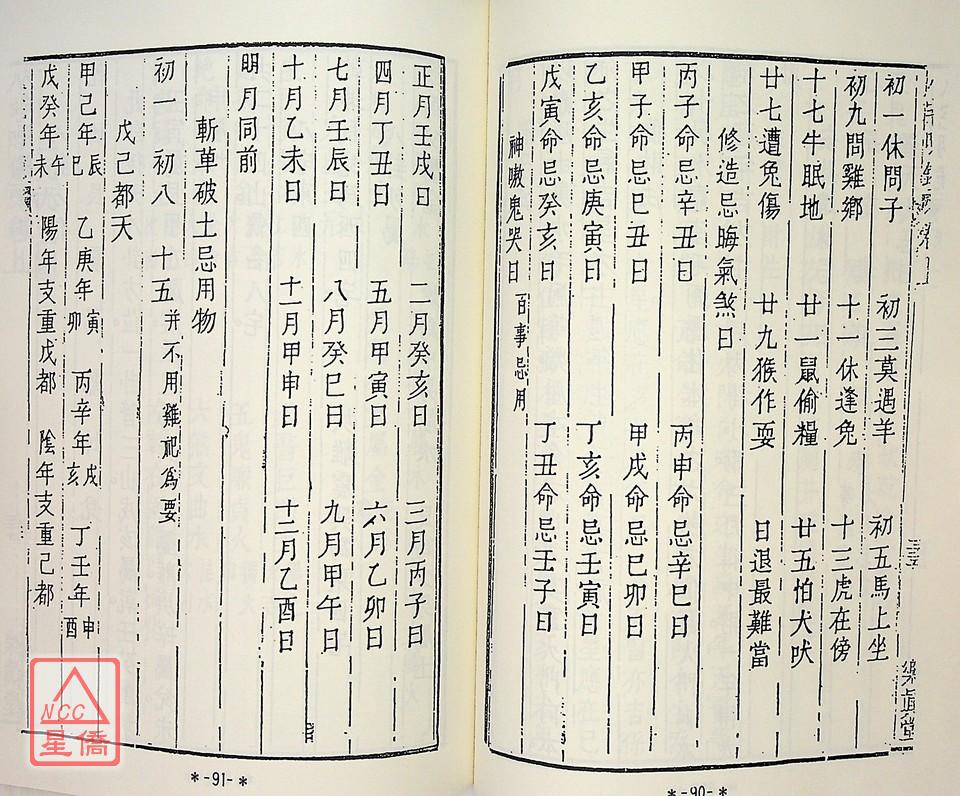 初一休問子 初三莫遇羊 初五馬上坐
初九問雞鄉 十一休逢兔 十三虎在傍
十七牛眠地 廿一鼠偷糧 廿五怕犬吠
廿七遭兔傷 廿九猴作耍 日退最難當
修造忌晦氣煞日
丙子命忌辛丑日 丙申命忌辛巳日
甲子命忌巳丑日 甲戌命忌巳卯日
乙亥命忌庚寅日 丁亥命忌壬寅日
戊寅命忌癸亥日 丁丑命忌壬子日
神嗷鬼哭日 百事忌用
樂真堂
*-90-*
正月壬戌日 二月癸亥日 三月丙子日
四月丁丑日 五月甲寅日 六月乙卯日
七月壬辰日 八月癸巳日 九月甲午日
十月乙未日 十一月甲申日 十二月乙酉日
明月同前
斬草破土忌用物
初一 初八 十五 并不用雞祀為要
戊己都天
甲己年辰巳 乙庚年寅卯 丙辛年戌亥 丁壬年申酉
戊癸年午未 陽年支重戊都 陰年支重己都
*-91-*
NCC
星僑